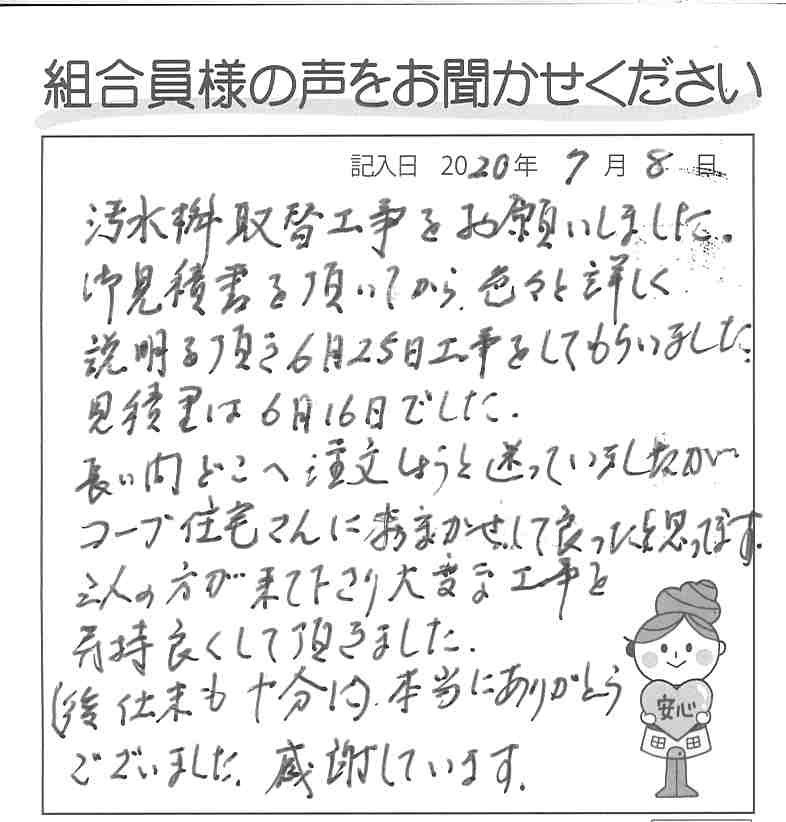 組合員様の声をお聞かせください
記入日 2020年 7月 8日
汚水桝取替工事をお願いしました。
御見積書を頂いてから、色々と詳しく
説明を頂き6月25日工事をしてもらいました
見積里は6月16日でした.
長い間どこへ注文しようと迷っていましたが
コープ住宅さんにおまかせして良ったと思ってます.
二人の方が来て下さり大変な工事を
気持良くして頂きました.
(後仕末も十分に)本当にありがとう
ございました. 感謝しています.
安心